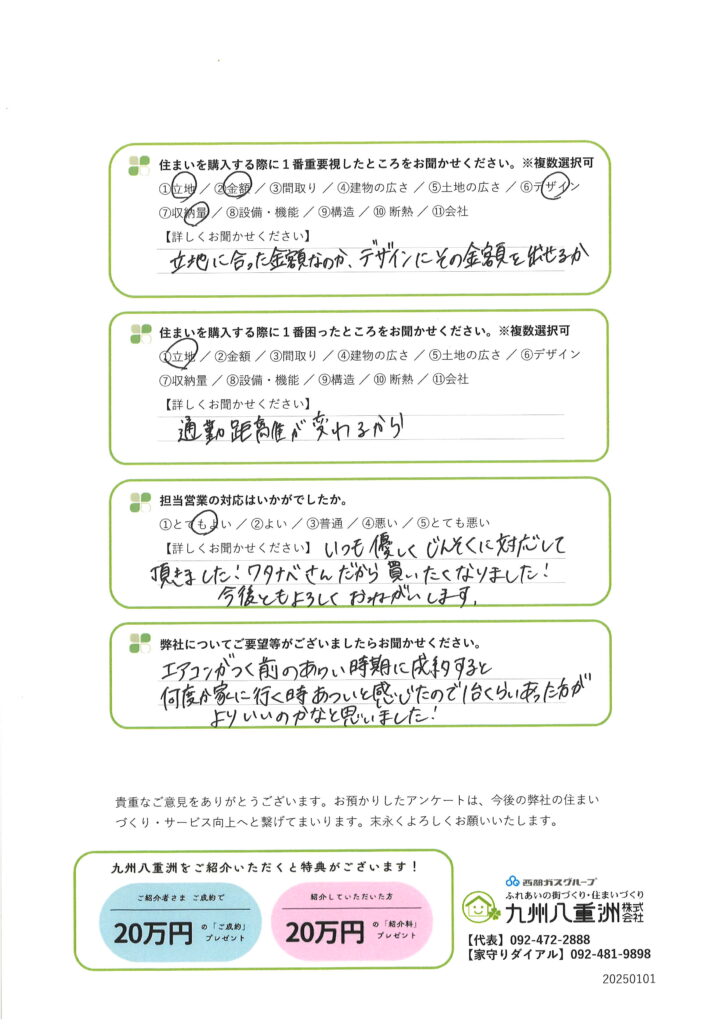 住まいを購入する際に１番重要視したところをお聞かせください。※複数選択可
①立地 ／ ②金額 ／ ③間取り ／ ④建物の広さ ／ ⑤土地の広さ ／ ⑥デザイン
⑦収納量 ／ ⑧設備・機能 ／ ⑨構造 ／ ⑩ 断熱 ／ ⑪会社
【詳しくお聞かせください】
立地に合った金額なのか、デザインにその金額を出せるか
住まいを購入する際に１番困ったところをお聞かせください。※複数選択可
①立地 ／ ②金額 ／ ③間取り ／ ④建物の広さ ／ ⑤土地の広さ ／ ⑥デザイン
⑦収納量 ／ ⑧設備・機能 ／ ⑨構造 ／ ⑩ 断熱 ／ ⑪会社
【詳しくお聞かせください】
通勤距離が変わるから
担当営業の対応はいかがでしたか。
①とてもよい ／ ②よい ／ ③普通 ／ ④悪い ／ ⑤とても悪い
【詳しくお聞かせください】 いつも優しくじんそくに対応して
頂きました！ワタナベさんだから買いたくなりました！
今後ともよろしくおねがいします。
弊社についてご要望等がございましたらお聞かせください。
エアコンがつく前のあつい時期に成約すると
何度か家に行く時あついと感じたので1台くらいあった方が
よりいいのかなと思いました！
貴重なご意見をありがとうございます。お預かりしたアンケートは、今後の弊社の住まい
づくり・サービス向上へと繋げてまいります。末永くよろしくお願いいたします。
九州八重洲をご紹介いただくと特典がございます！
ご紹介者さま ご成約で
20万円 の「ご成約」プレゼント
紹介していただいた方
20万円 の「紹介料」プレゼント
西部ガスグループ
ふれあいの街づくり・住まいづくり
九州八重洲株式会社
【代表】092-472-2888
【家守りダイアル】092-481-9898
20250101